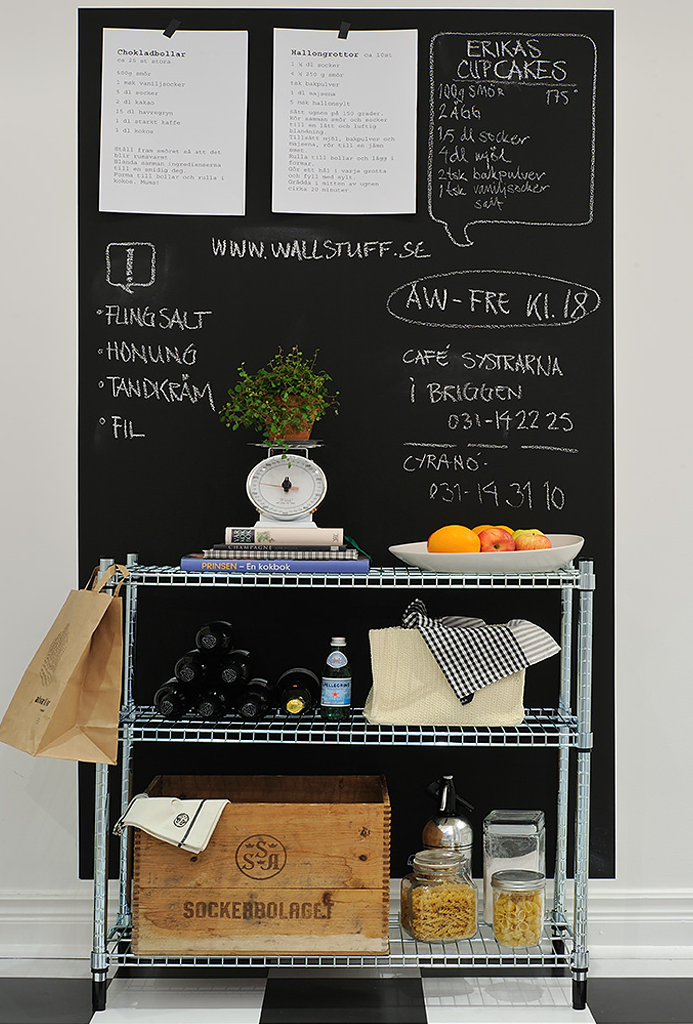 Chokladbollar
ca 25 st stora
500g smör
5 msk vaniljsocker
5 dl socker
2 dl kakao
15 dl havregryn
1 dl starkt kaffe
1 dl kokos
Ställ fram smöret så att det
blir rumsvarmt.
Blanda samman ingredienserna
till en smidig deg.
Forma till bollar och rulla i
kokos. Mums!
Hallongrottor ca 10st
1 ½ dl socker
250 g smör
tsk bakpulver
1 dl majsena
5 msk hallonsylt
Sätt ugnen på 150 grader.
Rör samman smör och socker
till en lätt och luftig
blandning.
Tillsätt mjöl, bakpulver och
majsena, rör till en jämn
smet.
Rulla till bollar och lägg i
formar.
Gör ett hål i varje grotta
och fyll med sylt.
Grädda i mitten av ugnen
cirka 20 minuter.
ERIKAS
CUPCAKES
100g SMÖR 175°
2 ÄGG
1,5 dl socker
4 dl mjöl
2 tsk bakpulver
1 tsk vaniljsocker
salt
WWW.WALLSTUFF.SE
!
FLINGSALT
HONUNG
TANDKRÄM
FIL
AW-FRE Kl.18
CAFÉ SYSTRARNA
i BRIGGEN
031-14 22 25
CYRANO-
031-14 31 10
CHAMPAGNE
PRINSEN – En kokbok
S.PELLEGRINO
SSA
SOCKERBOLAGET